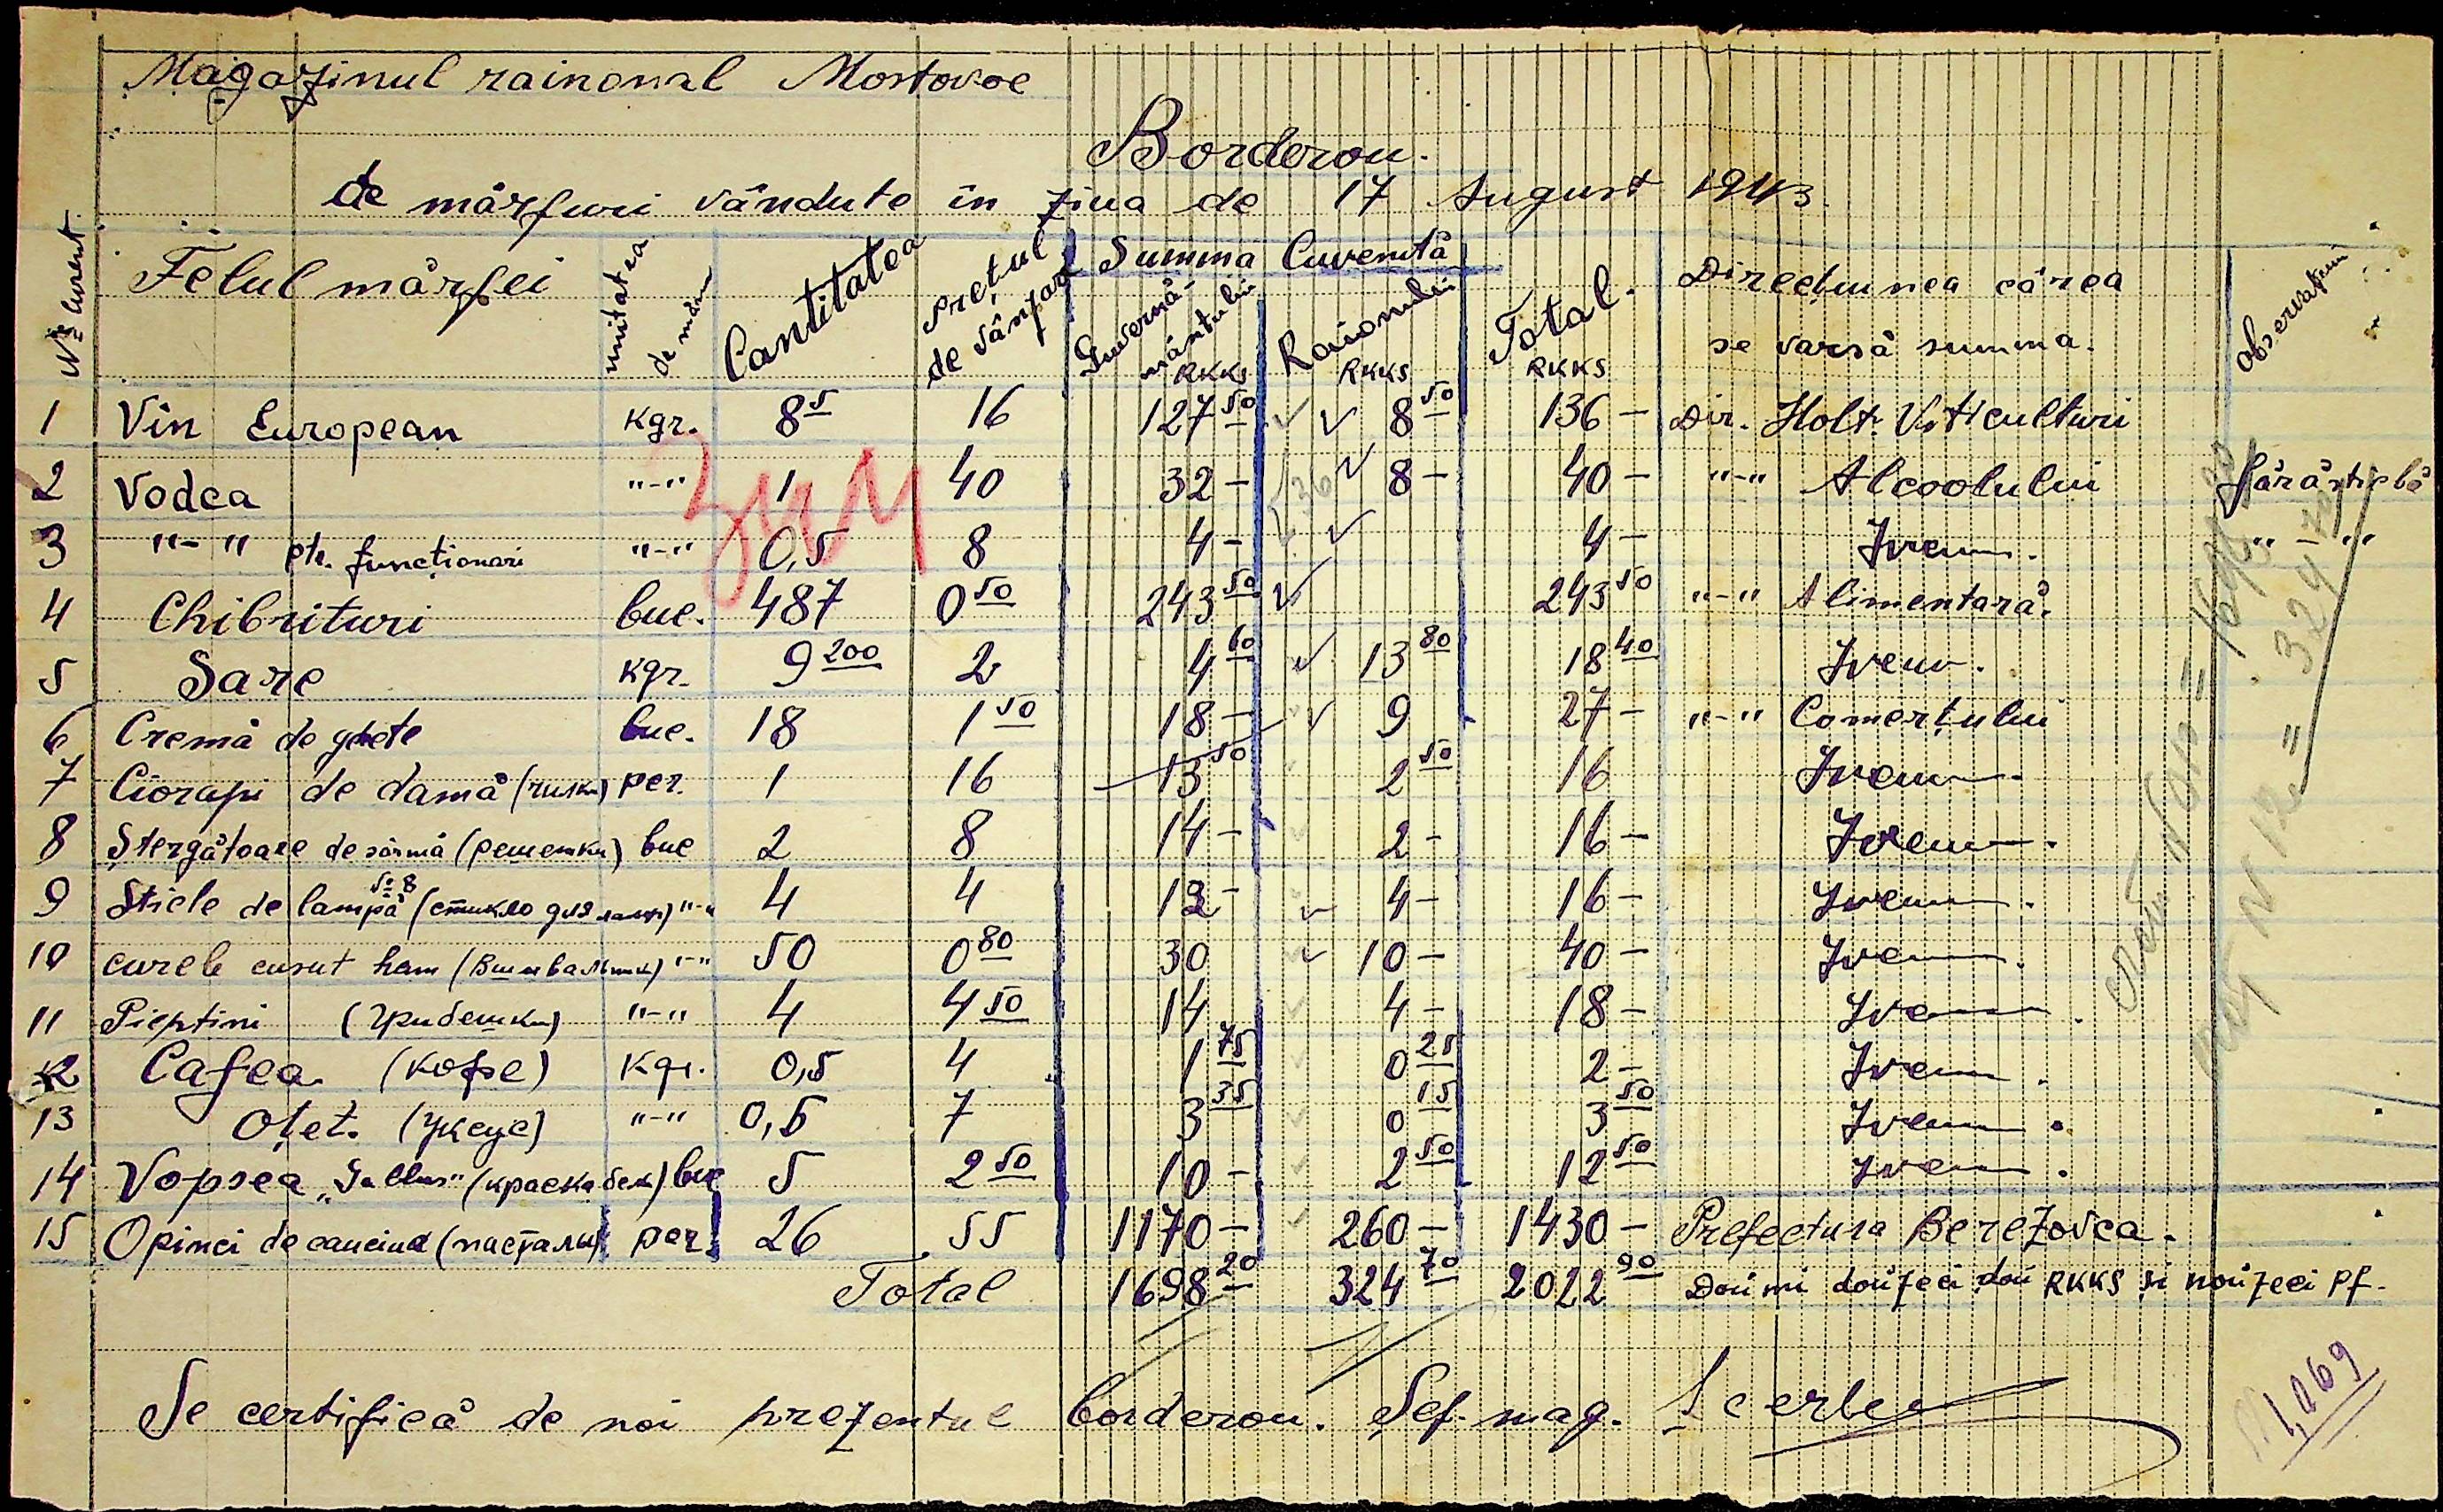 Magazinul raional Mostovoe
Borderou.
de mărfuri vândute în ziua de 17 August 1943.
№ curent. Felul mărfei unitatea de măsură Cantitatea Prețul de vânzare Summa Cuvenită Guvernă-mântului RKKS Raionului RKKS Total. RKKS Direcțiunea cărea se varsă summa. Observațiuni
1 Vin European kgr. 8 5 16 127 50 8 50 136 – Dir. Holt. Viticulturi
2 Vodca "-" 1 40 32 – 8 – 40 – "-" Alcoolului fără sticlă
3 "-" ptr. funcționari "-" 0,5 8 4 – 4 – Idem. "-"
4 Chibrituri buc. 487 0 50 243 50 243 50 "-" Alimentară.
5 Sare kgr. 9 200 2 4 60 13 80 18 40 Idem.
6 Cremă de ghete buc. 18 1 50 18 – 9 27 – "-" Comerțului
7 Ciorapi de damă per. 1 16 13 50 2 50 16 Idem.
8 Ștergătoare de sârmă (решетки) buc 2 8 14 – 2 – 16 – Idem.
9 Sticle de lampă № 8 (стикло для ламп) "-" 4 4 12 – 4 – 16 – Idem.
10 curele cusut ham "-" 50 0 80 30 10 – 40 – Idem.
11 Pieptini (гребешки) "-" 4 4 50 14 4 – 18 – Idem.
12 Cafea (кофе) kgr. 0,5 4 1 75 0 25 2 – Idem.
13 Oțet. (уксус) "-" 0,5 7 3 35 0 15 3 50 Idem.
14 Vopsea "Gallus" buc 5 2 50 10 – 2 50 12 50 Idem.
15 Opinci de cauciuc (пасталы) per. 26 55 1170 – 260 – 1430 – Prefectura Berezovca.
Total 1698 20 324 70 2022 90 Două mii douăzeci două RKKS și nouăzeci pf.
Se certifică de noi prezentul borderou. Șef mag. Scerba
1,069